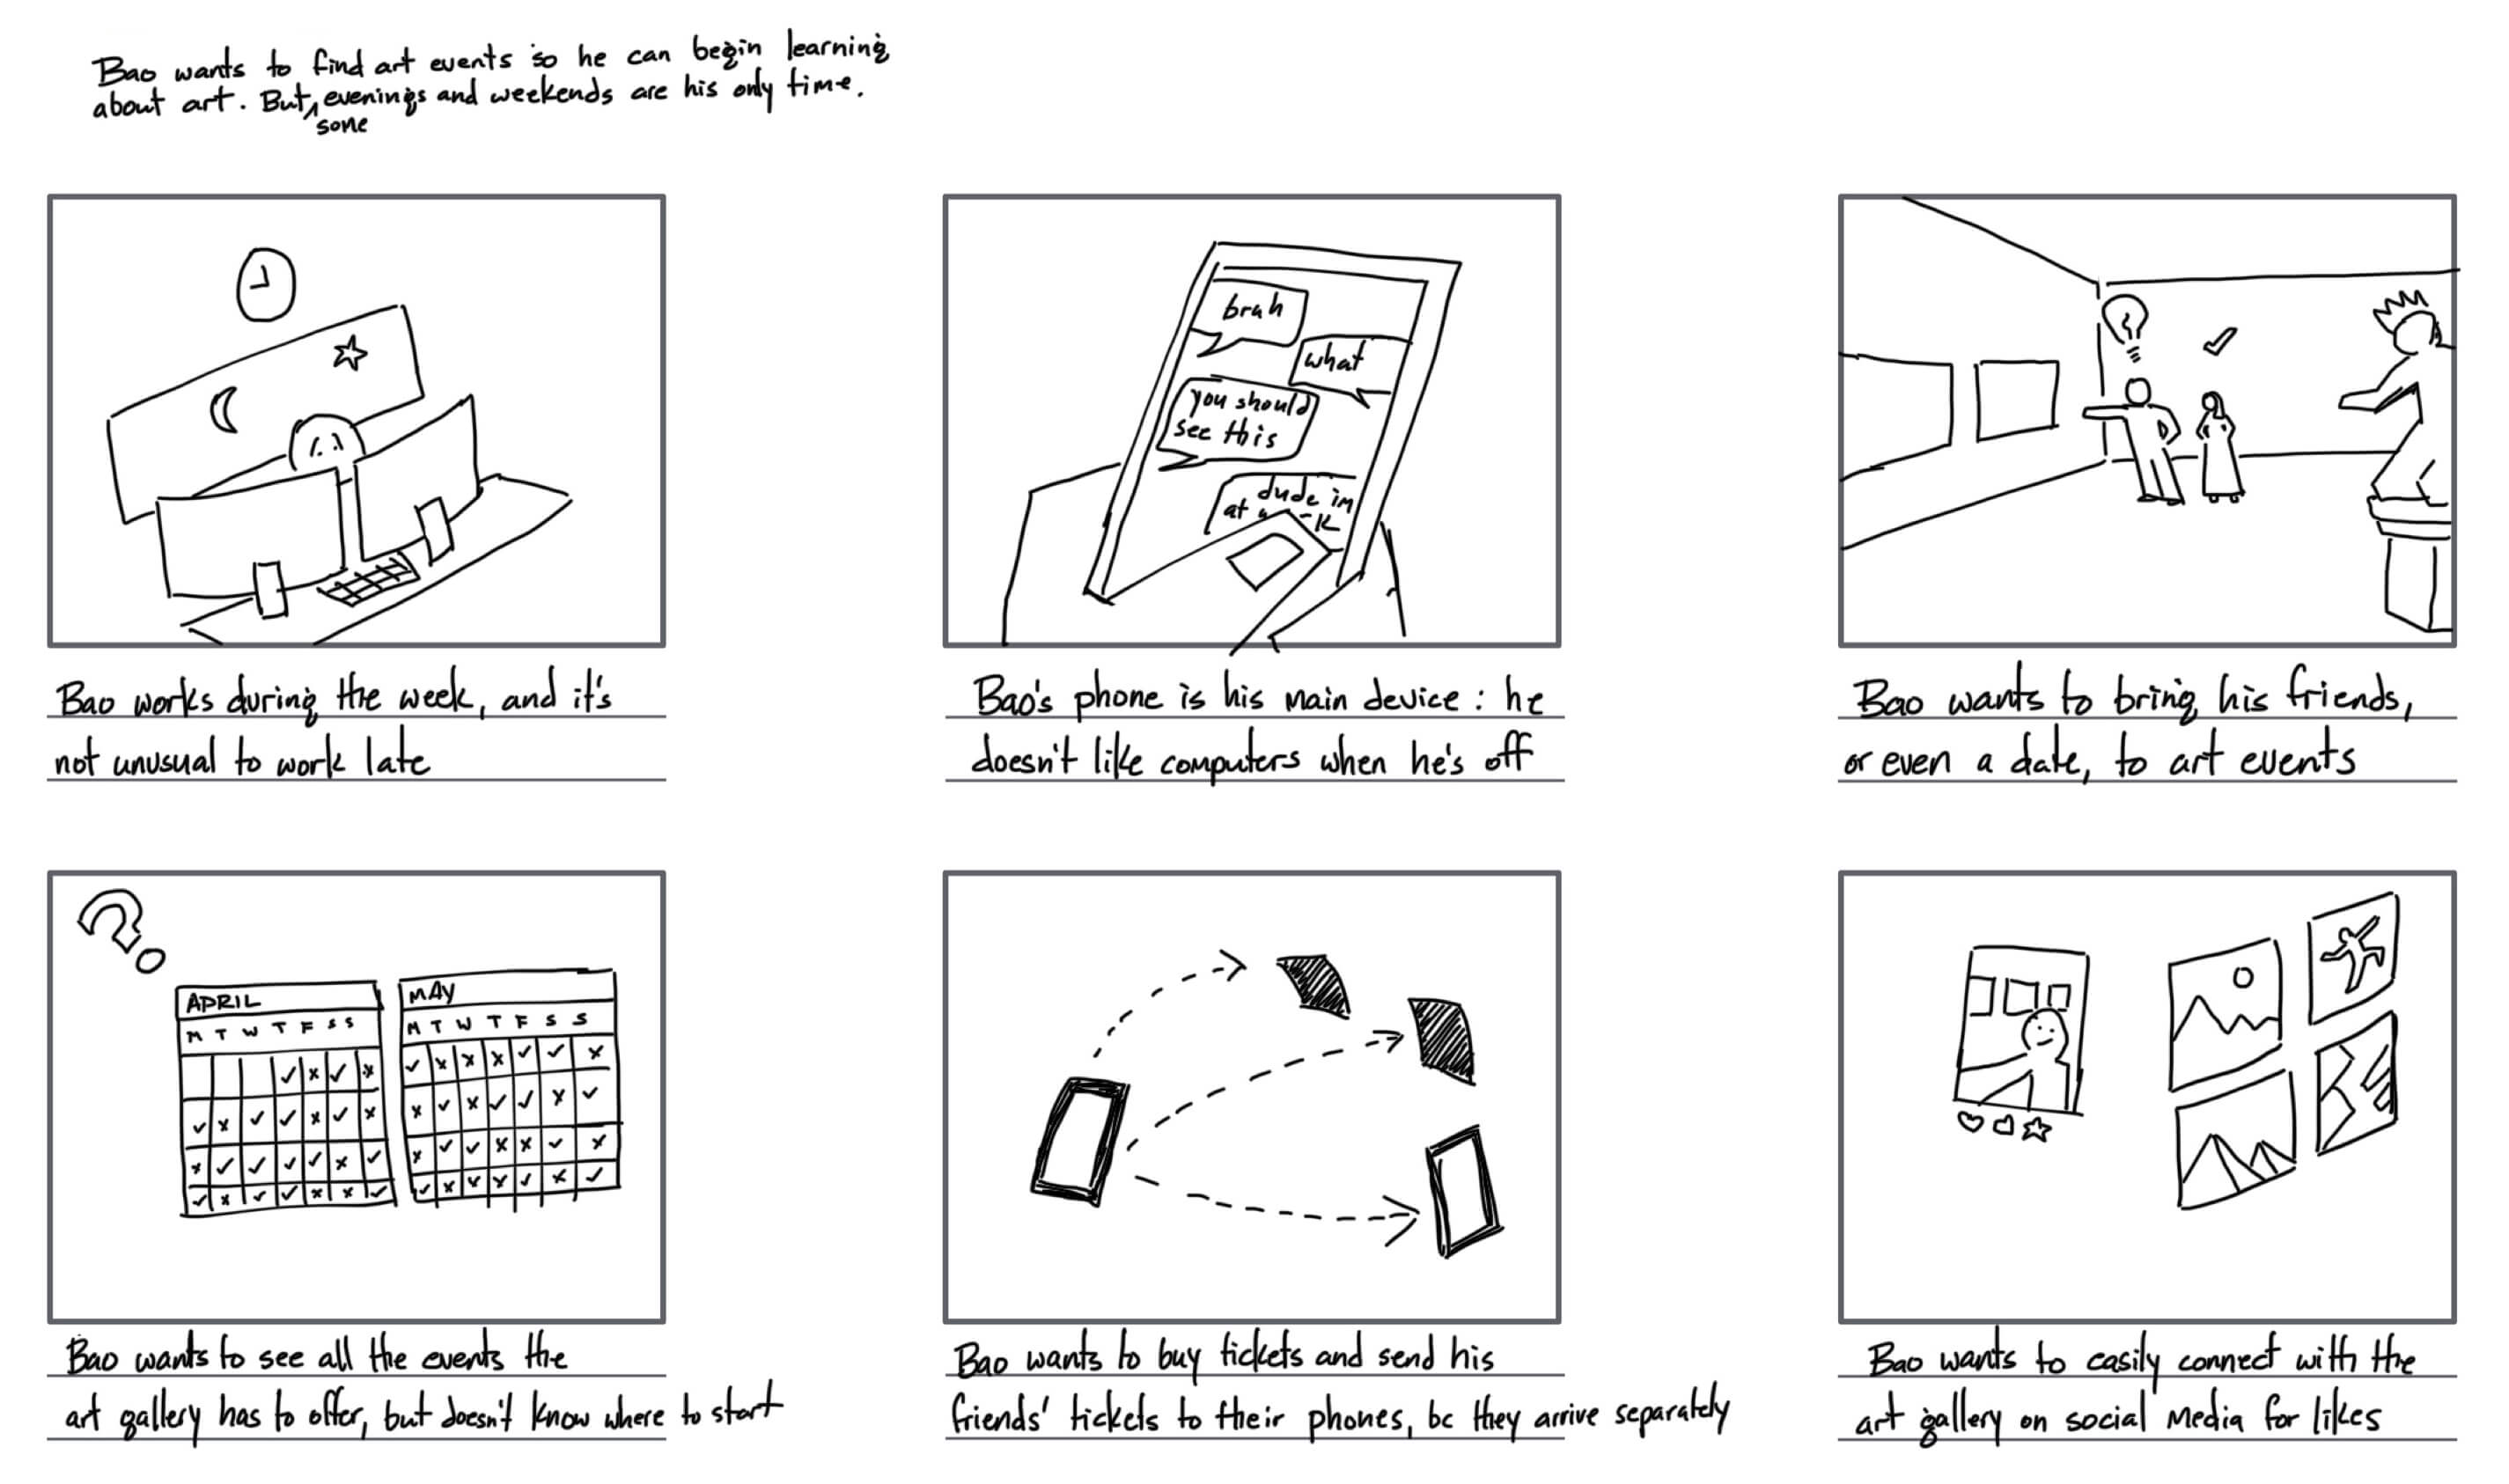 Bao wants to find art events so he can begin learning
about art. But, evenings and weekends are his only time.
some
brah
what
you should
see this
dude im
at
Bao works during the week, and it's
not unusual to work late
Bao's phone is his main device: he
doesn't like computers when he's off
Bao wants to bring his friends,
or even a date, to art events
APRIL
M T W T F S S
MAY
M T W T F S S
Bao wants to see all the events the
art gallery has to offer, but doesn't know where to start
Bao wants to buy tickets and send his
friends' tickets to their phones, bc they arrive separately
Bao wants to easily connect with the
art gallery on social media for likes